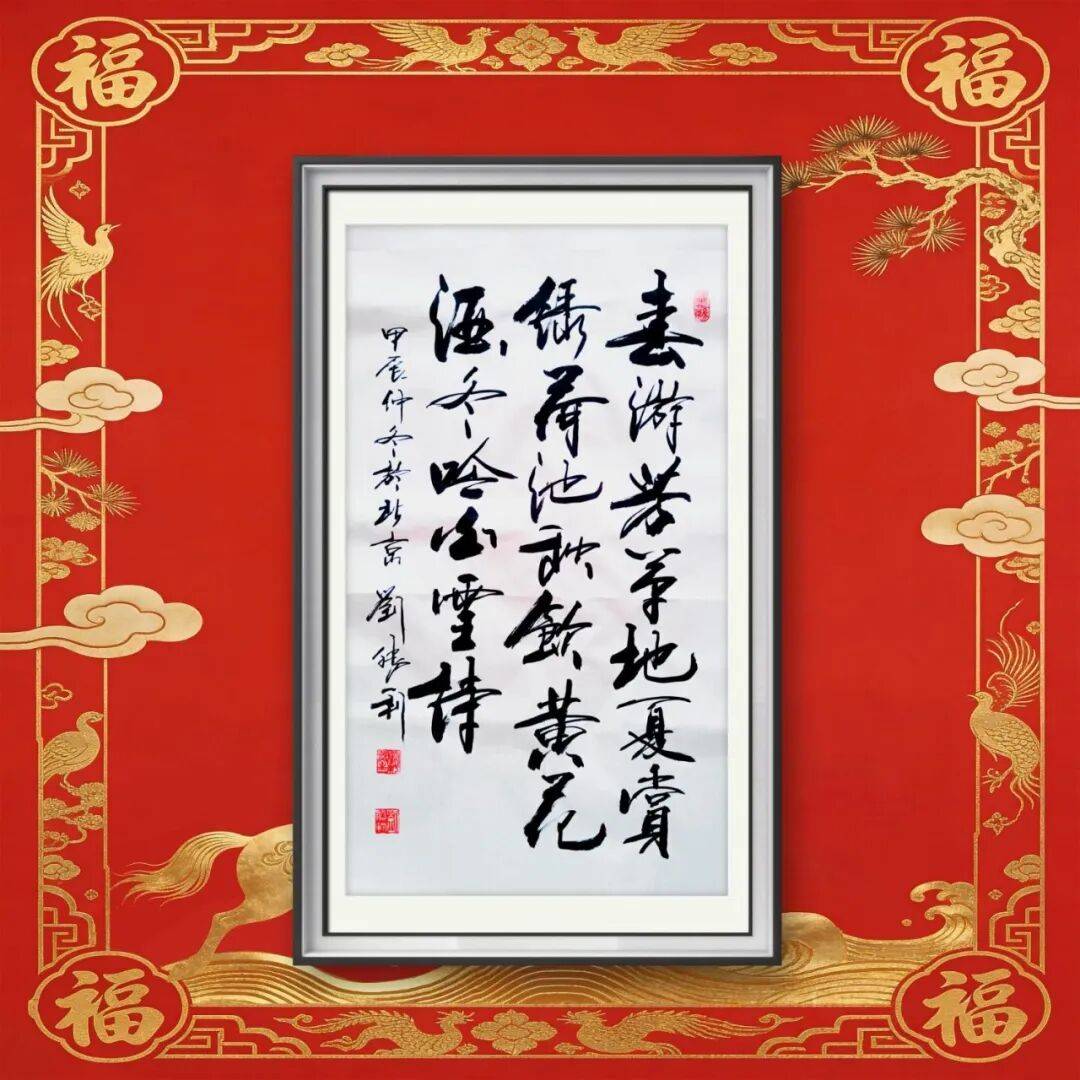 福
福
春游芳草地夏賞
緑荷池秋飲黄花
酒冬吟白雪詩
甲辰仲冬於北京 劉勝利
福
福